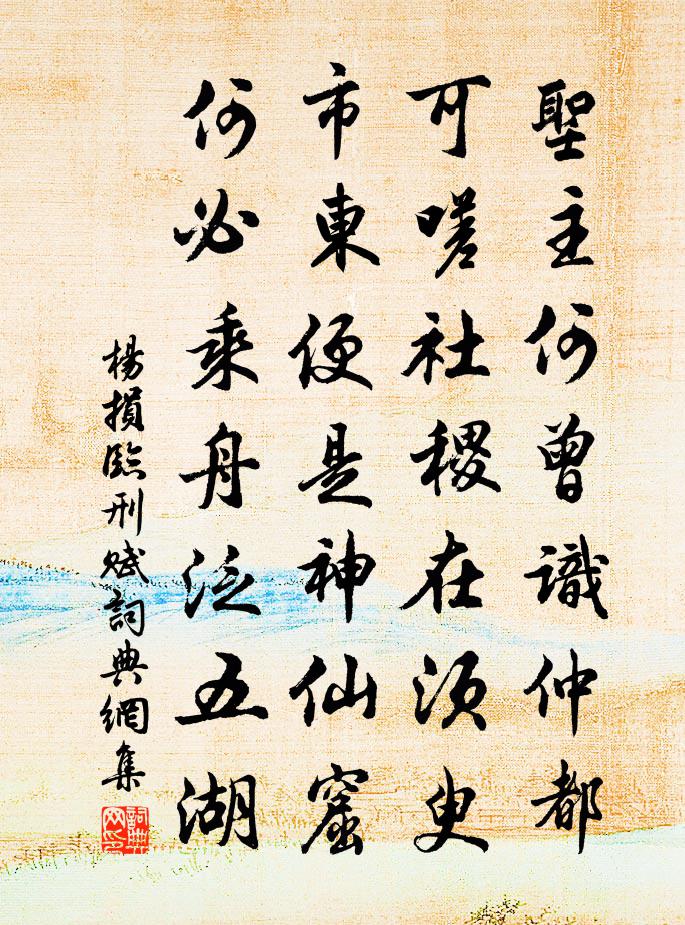 聖主何曾識仲都
可嗟社稷在須臾
市東便是神仙窟
何必乘舟泛五湖
楊損臨刑賦詞典網集
詞典网印